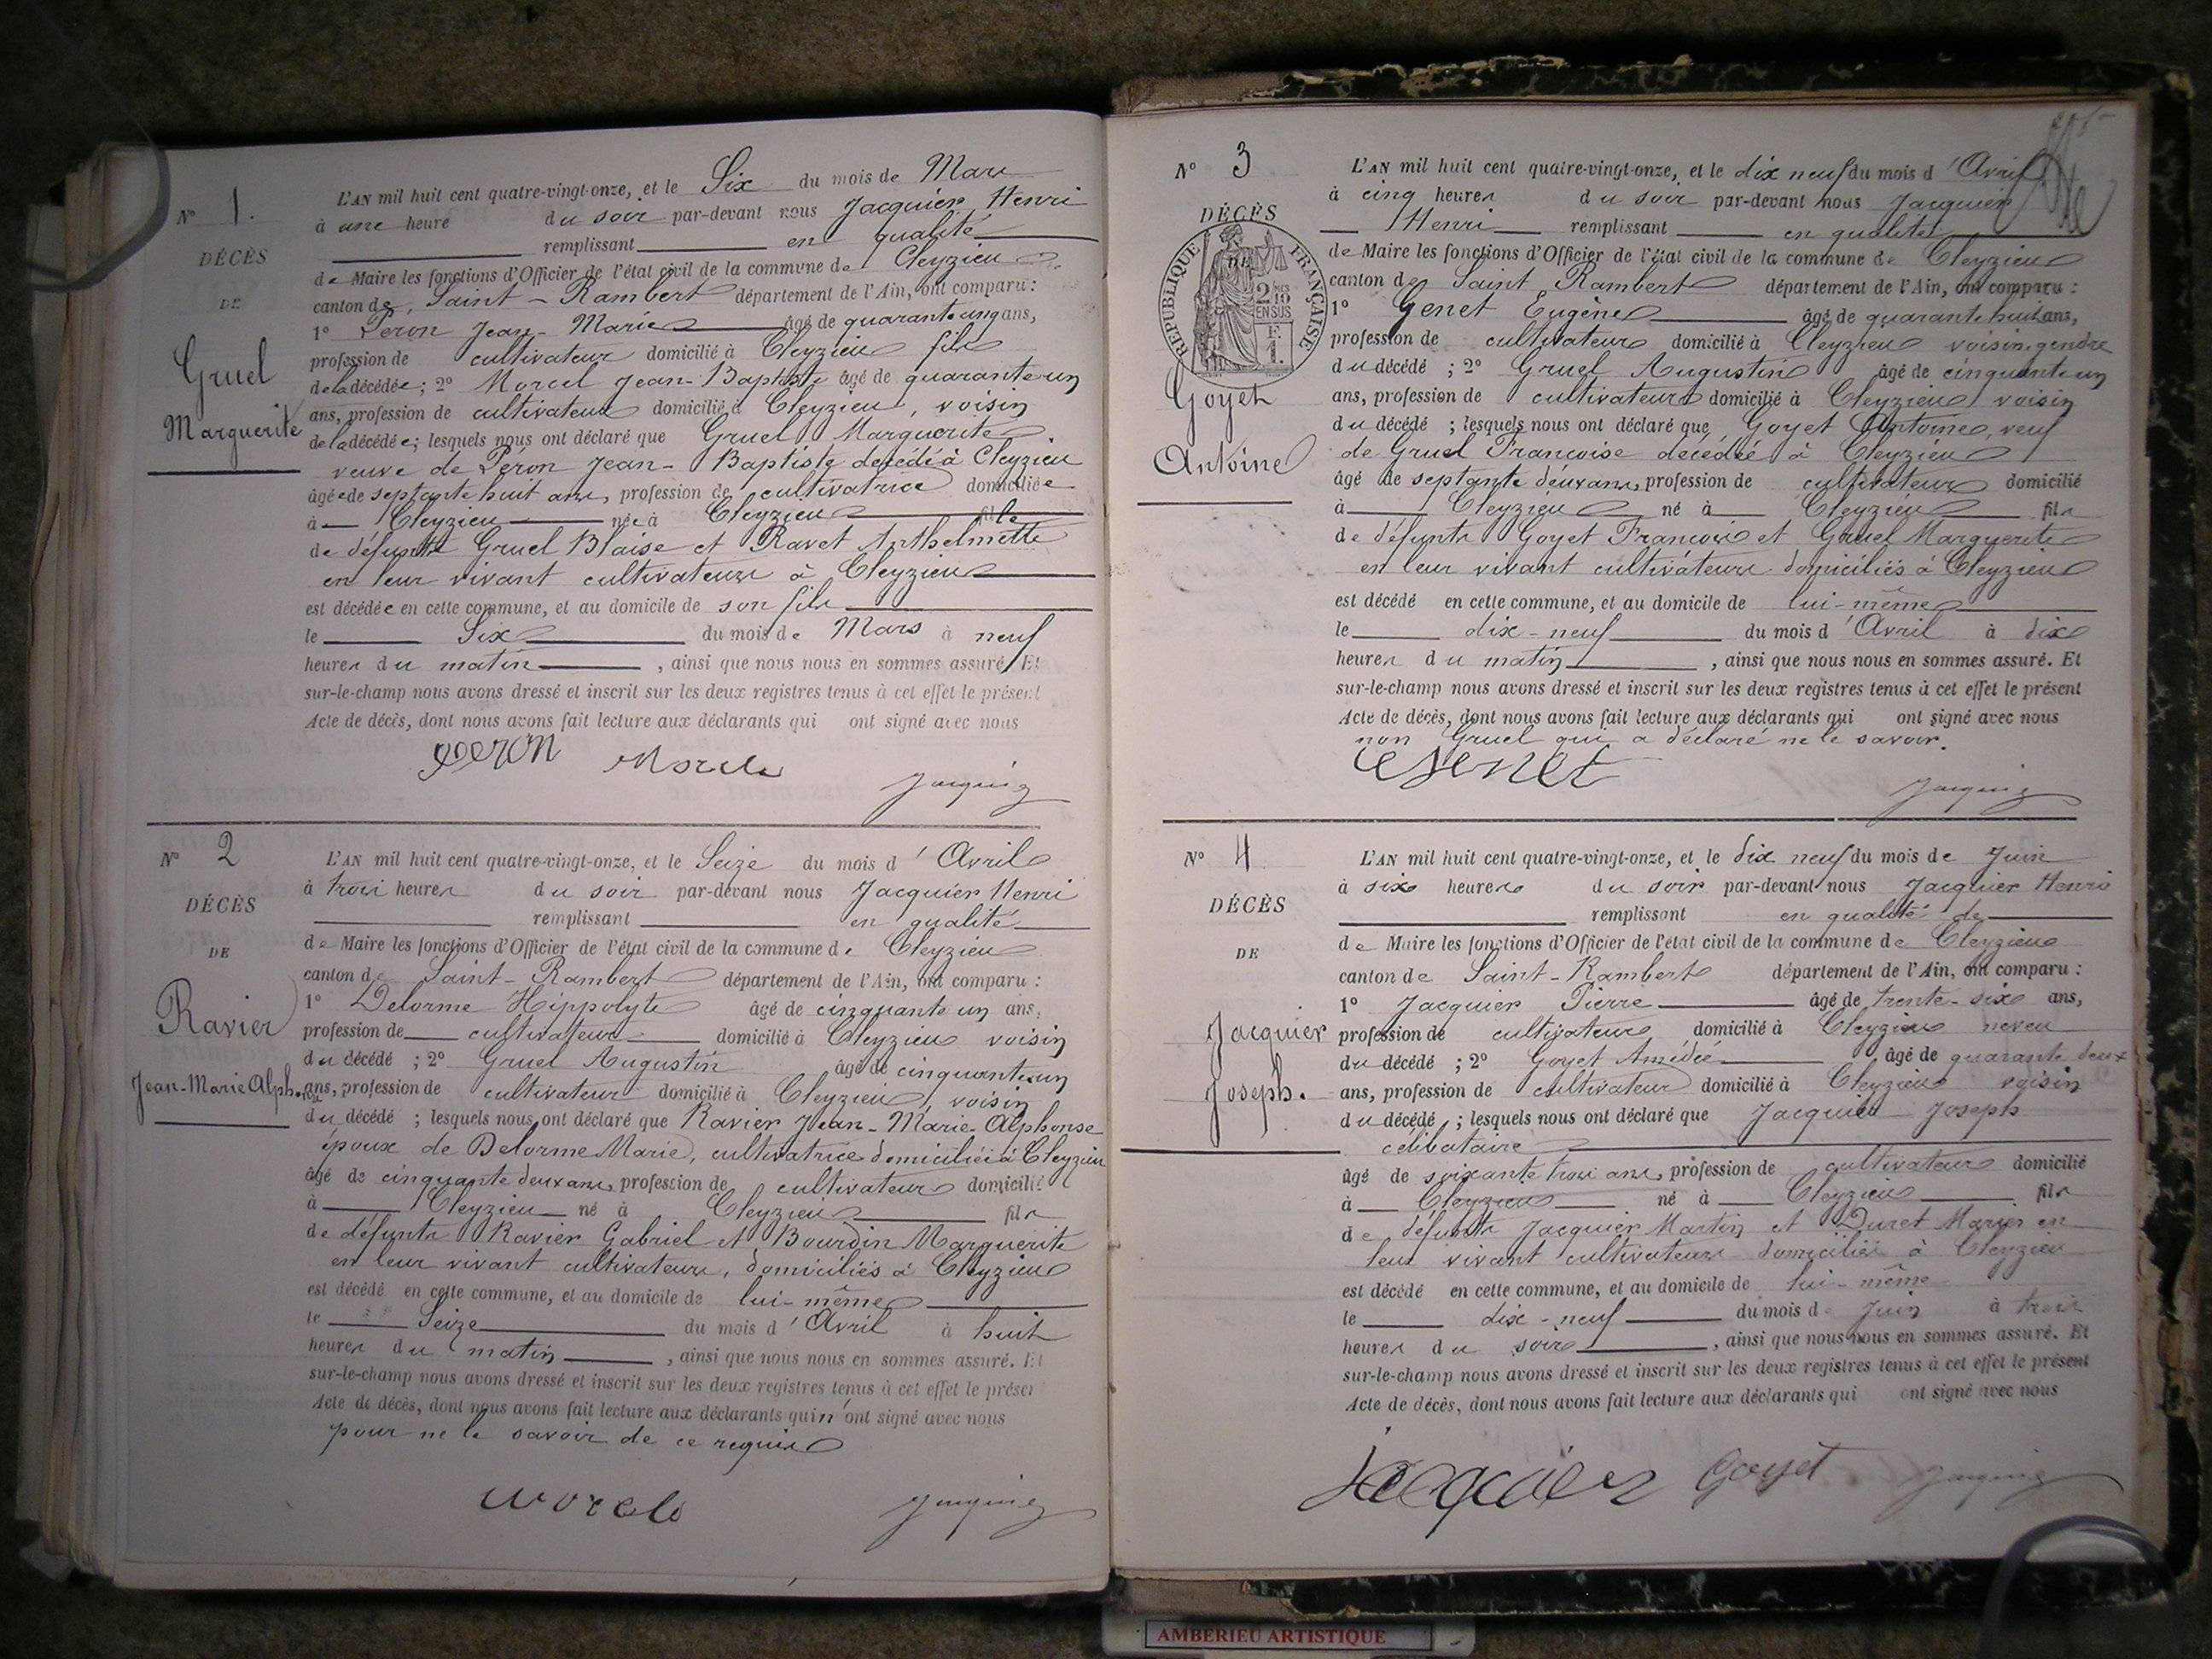 N° 1.
DÉCÈS
DE
Gruel
Marguerite
L'AN mil huit cent quatre-vingt-onze, et le Six du mois de Mars
à une heure du soir par-devant nous Jacquier Henri
remplissant en qualité
de Maire les fonctions d'Officier de l'état civil de la commune de Cleyzieu
canton de Saint-Rambert département de l'Ain, ont comparu :
1° Peron Jean-Marie âgé de quarante cinq ans,
profession de cultivateur domicilié à Cleyzieu fils
de la décédée ; 2° Morcel Jean-Baptiste âgé de quarante un
ans, profession de cultivateur domicilié à Cleyzieu, voisin
de la décédée ; lesquels nous ont déclaré que Gruel Marguerite
veuve de Péron Jean-Baptiste décédé à Cleyzieu
âgée de septante huit ans, profession de cultivatrice domiciliée
à Cleyzieu née à Cleyzieu fille
de défunts Gruel Blaise et Ravet Anthelmette
en leur vivant cultivateurs à Cleyzieu
est décédée en cette commune, et au domicile de son fils
le Six du mois de Mars à neuf
heures du matin, ainsi que nous nous en sommes assuré. Et
sur-le-champ nous avons dressé et inscrit sur les deux registres tenus à cet effet le présent
Acte de décès, dont nous avons fait lecture aux déclarants qui ont signé avec nous
peron Morcel
Jacquier
N° 2
DÉCÈS
DE
Ravier
Jean-Marie Alph.
L'AN mil huit cent quatre-vingt-onze, et le Seize du mois d'Avril
à trois heures du soir par-devant nous Jacquier Henri
remplissant en qualité
de Maire les fonctions d'Officier de l'état civil de la commune de Cleyzieu
canton de Saint-Rambert département de l'Ain, ont comparu :
1° Delorme Hippolyte âgé de cinquante un ans,
profession de cultivateur domicilié à Cleyzieu voisin
du décédé ; 2° Gruel Augustin âgé de cinquante un
ans, profession de cultivateur domicilié à Cleyzieu, voisin
du décédé ; lesquels nous ont déclaré que Ravier Jean-Marie-Alphonse
époux de Delorme Marie, cultivatrice domiciliée à Cleyzieu
âgé de cinquante deux ans, profession de cultivateur domicilié
à Cleyzieu né à Cleyzieu fils
de défunts Ravier Gabriel et Bourdin Marguerite
en leur vivant cultivateurs, domiciliés à Cleyzieu
est décédé en cette commune, et au domicile de lui-même
le Seize du mois d'Avril à huit
heures du matin, ainsi que nous nous en sommes assuré. Et
sur-le-champ nous avons dressé et inscrit sur les deux registres tenus à cet effet le présen
Acte de décès, dont nous avons fait lecture aux déclarants qui n'ont signé avec nous
pour ne le savoir de ce requis
Jacquier
N° 3
DÉCÈS
DE
RÉPUBLIQUE FRANÇAISE
2/10 EN SUS
Goyet
Antoine
L'AN mil huit cent quatre-vingt-onze, et le dix neuf du mois d'Avril
à cinq heures du soir par-devant nous Jacquier
Henri remplissant en qualité
de Maire les fonctions d'Officier de l'état civil de la commune de Cleyzieu
canton de Saint Rambert département de l'Ain, ont comparu :
1° Genet Eugène âgé de quarante huit ans,
profession de cultivateur domicilié à Cleyzieu voisin, gendre
du décédé ; 2° Gruel Augustin âgé de cinquante un
ans, profession de cultivateur domicilié à Cleyzieu voisin
du décédé ; lesquels nous ont déclaré que Goyet Antoine, veuf
de Gruel Françoise décédée à Cleyzieu
âgé de septante deux ans, profession de cultivateur domicilié
à Cleyzieu né à Cleyzieu fils
de défunts Goyet François et Gruel Marguerite
en leur vivant cultivateurs domiciliés à Cleyzieu
est décédé en cette commune, et au domicile de lui-même
le dix-neuf du mois d'Avril à dix
heures du matin, ainsi que nous nous en sommes assuré. Et
sur-le-champ nous avons dressé et inscrit sur les deux registres tenus à cet effet le présent
Acte de décès, dont nous avons fait lecture aux déclarants qui ont signé avec nous
non Gruel qui a déclaré ne le savoir.
Genet
Jacquier
N° 4
DÉCÈS
DE
Jacquier
Joseph.
L'AN mil huit cent quatre-vingt-onze, et le dix neuf du mois de Juin
à six heures du soir par-devant nous Jacquier Henri
remplissant en qualité de
de Maire les fonctions d'Officier de l'état civil de la commune de Cleyzieu
canton de Saint-Rambert département de l'Ain, ont comparu :
1° Jacquier Pierre âgé de trente-six ans,
profession de cultivateur domicilié à Cleyzieu neveu
du décédé ; 2° Goyet Amédée âgé de quarante deux
ans, profession de cultivateur domicilié à Cleyzieu voisin
du décédé ; lesquels nous ont déclaré que Jacquier Joseph
célibataire
âgé de soixante trois ans, profession de cultivateur domicilié
à Cleyzieu né à Cleyzieu fils
de défunts Jacquier Martin et Duret Marie en
leur vivant cultivateurs domiciliés à Cleyzieu
est décédé en cette commune, et au domicile de lui-même
le dix-neuf du mois de Juin à trois
heures du soir, ainsi que nous nous en sommes assuré. Et
sur-le-champ nous avons dressé et inscrit sur les deux registres tenus à cet effet le présent
Acte de décès, dont nous avons fait lecture aux déclarants qui ont signé avec nous
Jacquier Goyet Jacquier
AMBERIEU ARTISTIQUE